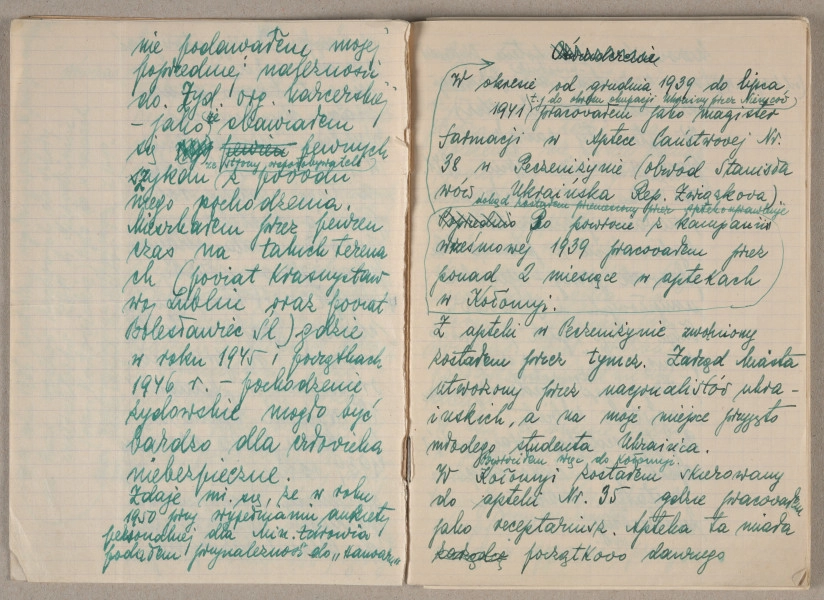 nie podawałem mojej
poprzedniej należności
do Żyd. org. harcerskiej
- jako że obawiałem
się pewnych
ze strony współobywateli
szykan z powodu
mego pochodzenia.
Mieszkałem przez pewien
czas na takich terena
ch (powiat Krasnystaw
woj Lublin oraz powiat
Bolesławiec Śl) gdzie
w roku 1945 i początkach
1946 r. - pochodzenie
żydowskie mogło być
bardzo dla człowieka
niebezpieczne.
Zdaje mi się, że w roku
1950 przy wypełnianiu ankiety
personalnej dla Min. Zdrowia
podałem przynależność do „Hanoar"
W okresie od grudnia 1939 do lipca
t.j do okresu okupacji Ukrainy przez Niemców
1941 pracowałem jako magister
farmacji w Aptece Państwowej Nr.
38 w Peczeniżynie (obwód Stanisła
wów, Ukraińska Rep. Związkowa)
dokąd zostałem przeniesiony przez
Poprzednio Po powrocie z kampanii
wrześniowej 1939 pracowałem przez
ponad 2 miesiące w aptekach
w Kołomyi.
Z apteki w Peczeniżynie zwolniony
zostałem przez tymcz. Zarząd Miasta
utworzony przez nacjonalistów ukra-
ińskich, a na moje miejsce przyjęto
młodego studenta Ukraińca.
Powróciłem więc do Kołomyi.
W Kołomyi zostałem skierowany
do apteki Nr. 35 gdzie pracowałem
jako receptariusz. Apteka ta miała
początkowo dawnego